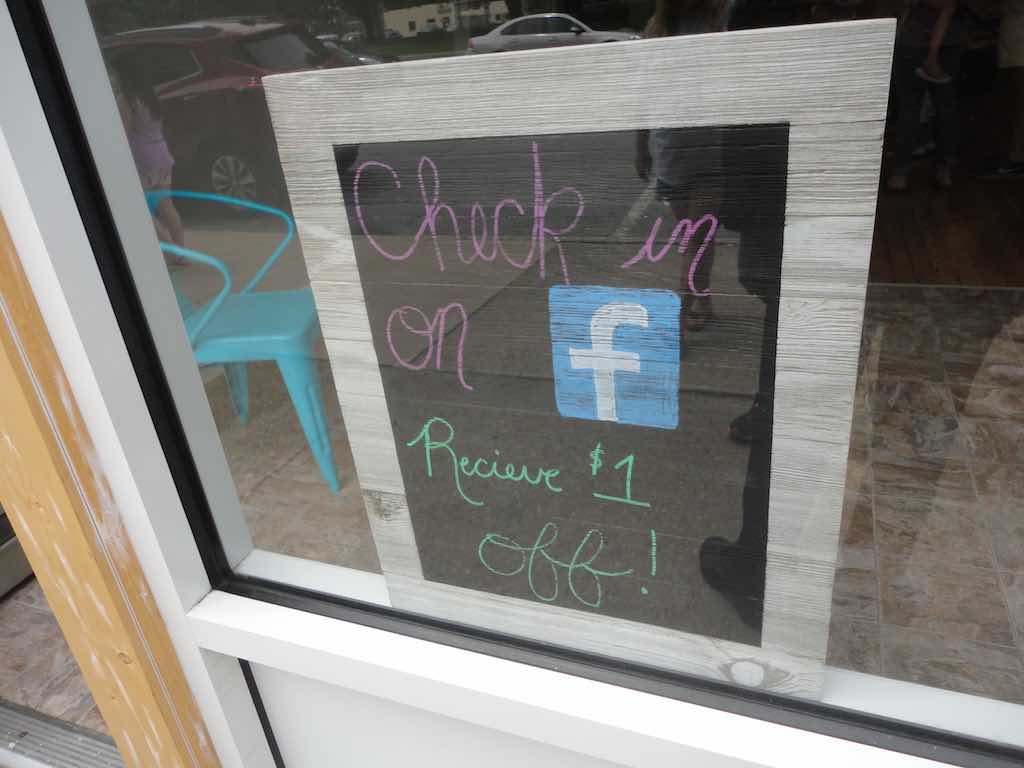 Check in
on f
Recieve $1
off!